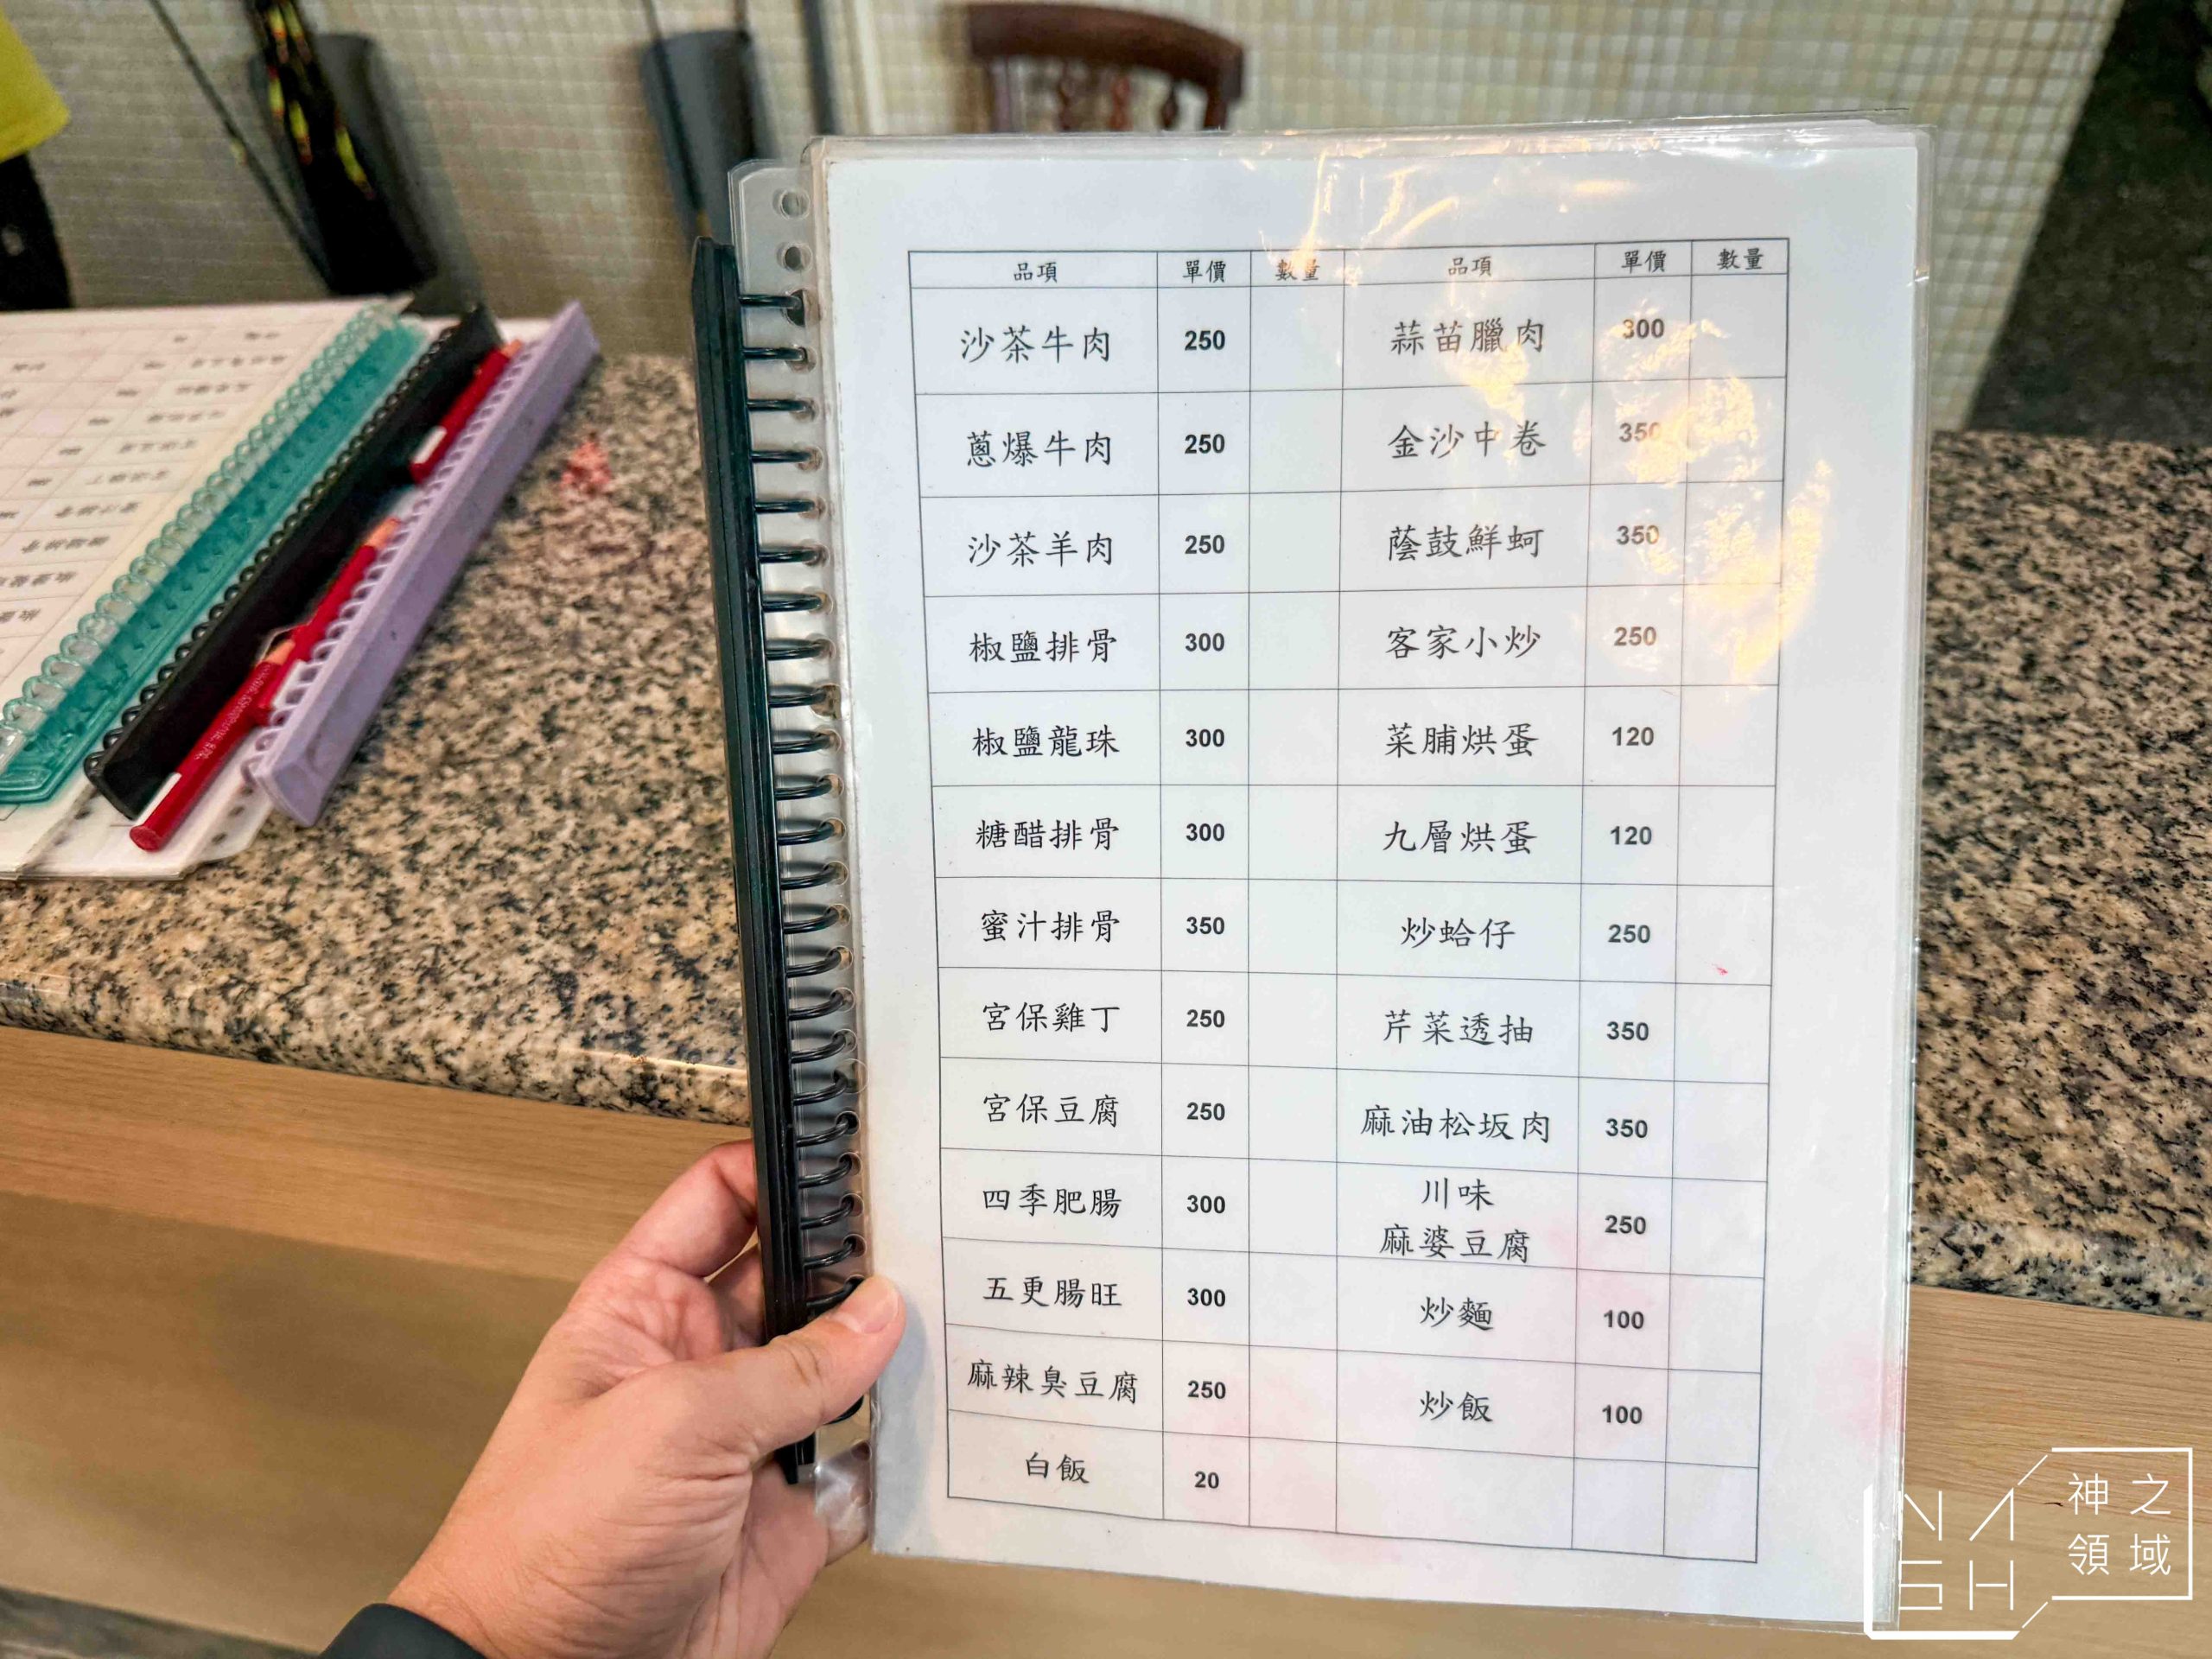 品項 單價 數量 品項 單價 數量
沙茶牛肉 250 蒜苗臘肉 300
蔥爆牛肉 250 金沙中卷 350
沙茶羊肉 250 蔭鼓鮮蚵 350
椒鹽排骨 300 客家小炒 250
椒鹽龍珠 300 菜脯烘蛋 120
糖醋排骨 300 九層烘蛋 120
蜜汁排骨 350 炒蛤仔 250
宮保雞丁 250 芹菜透抽 350
宮保豆腐 250 麻油松坂肉 350
四季肥腸 300 川味
麻婆豆腐 250
五更腸旺 300 炒麵 100
麻辣臭豆腐 250 炒飯 100
白飯 20
NASH
神之
領域